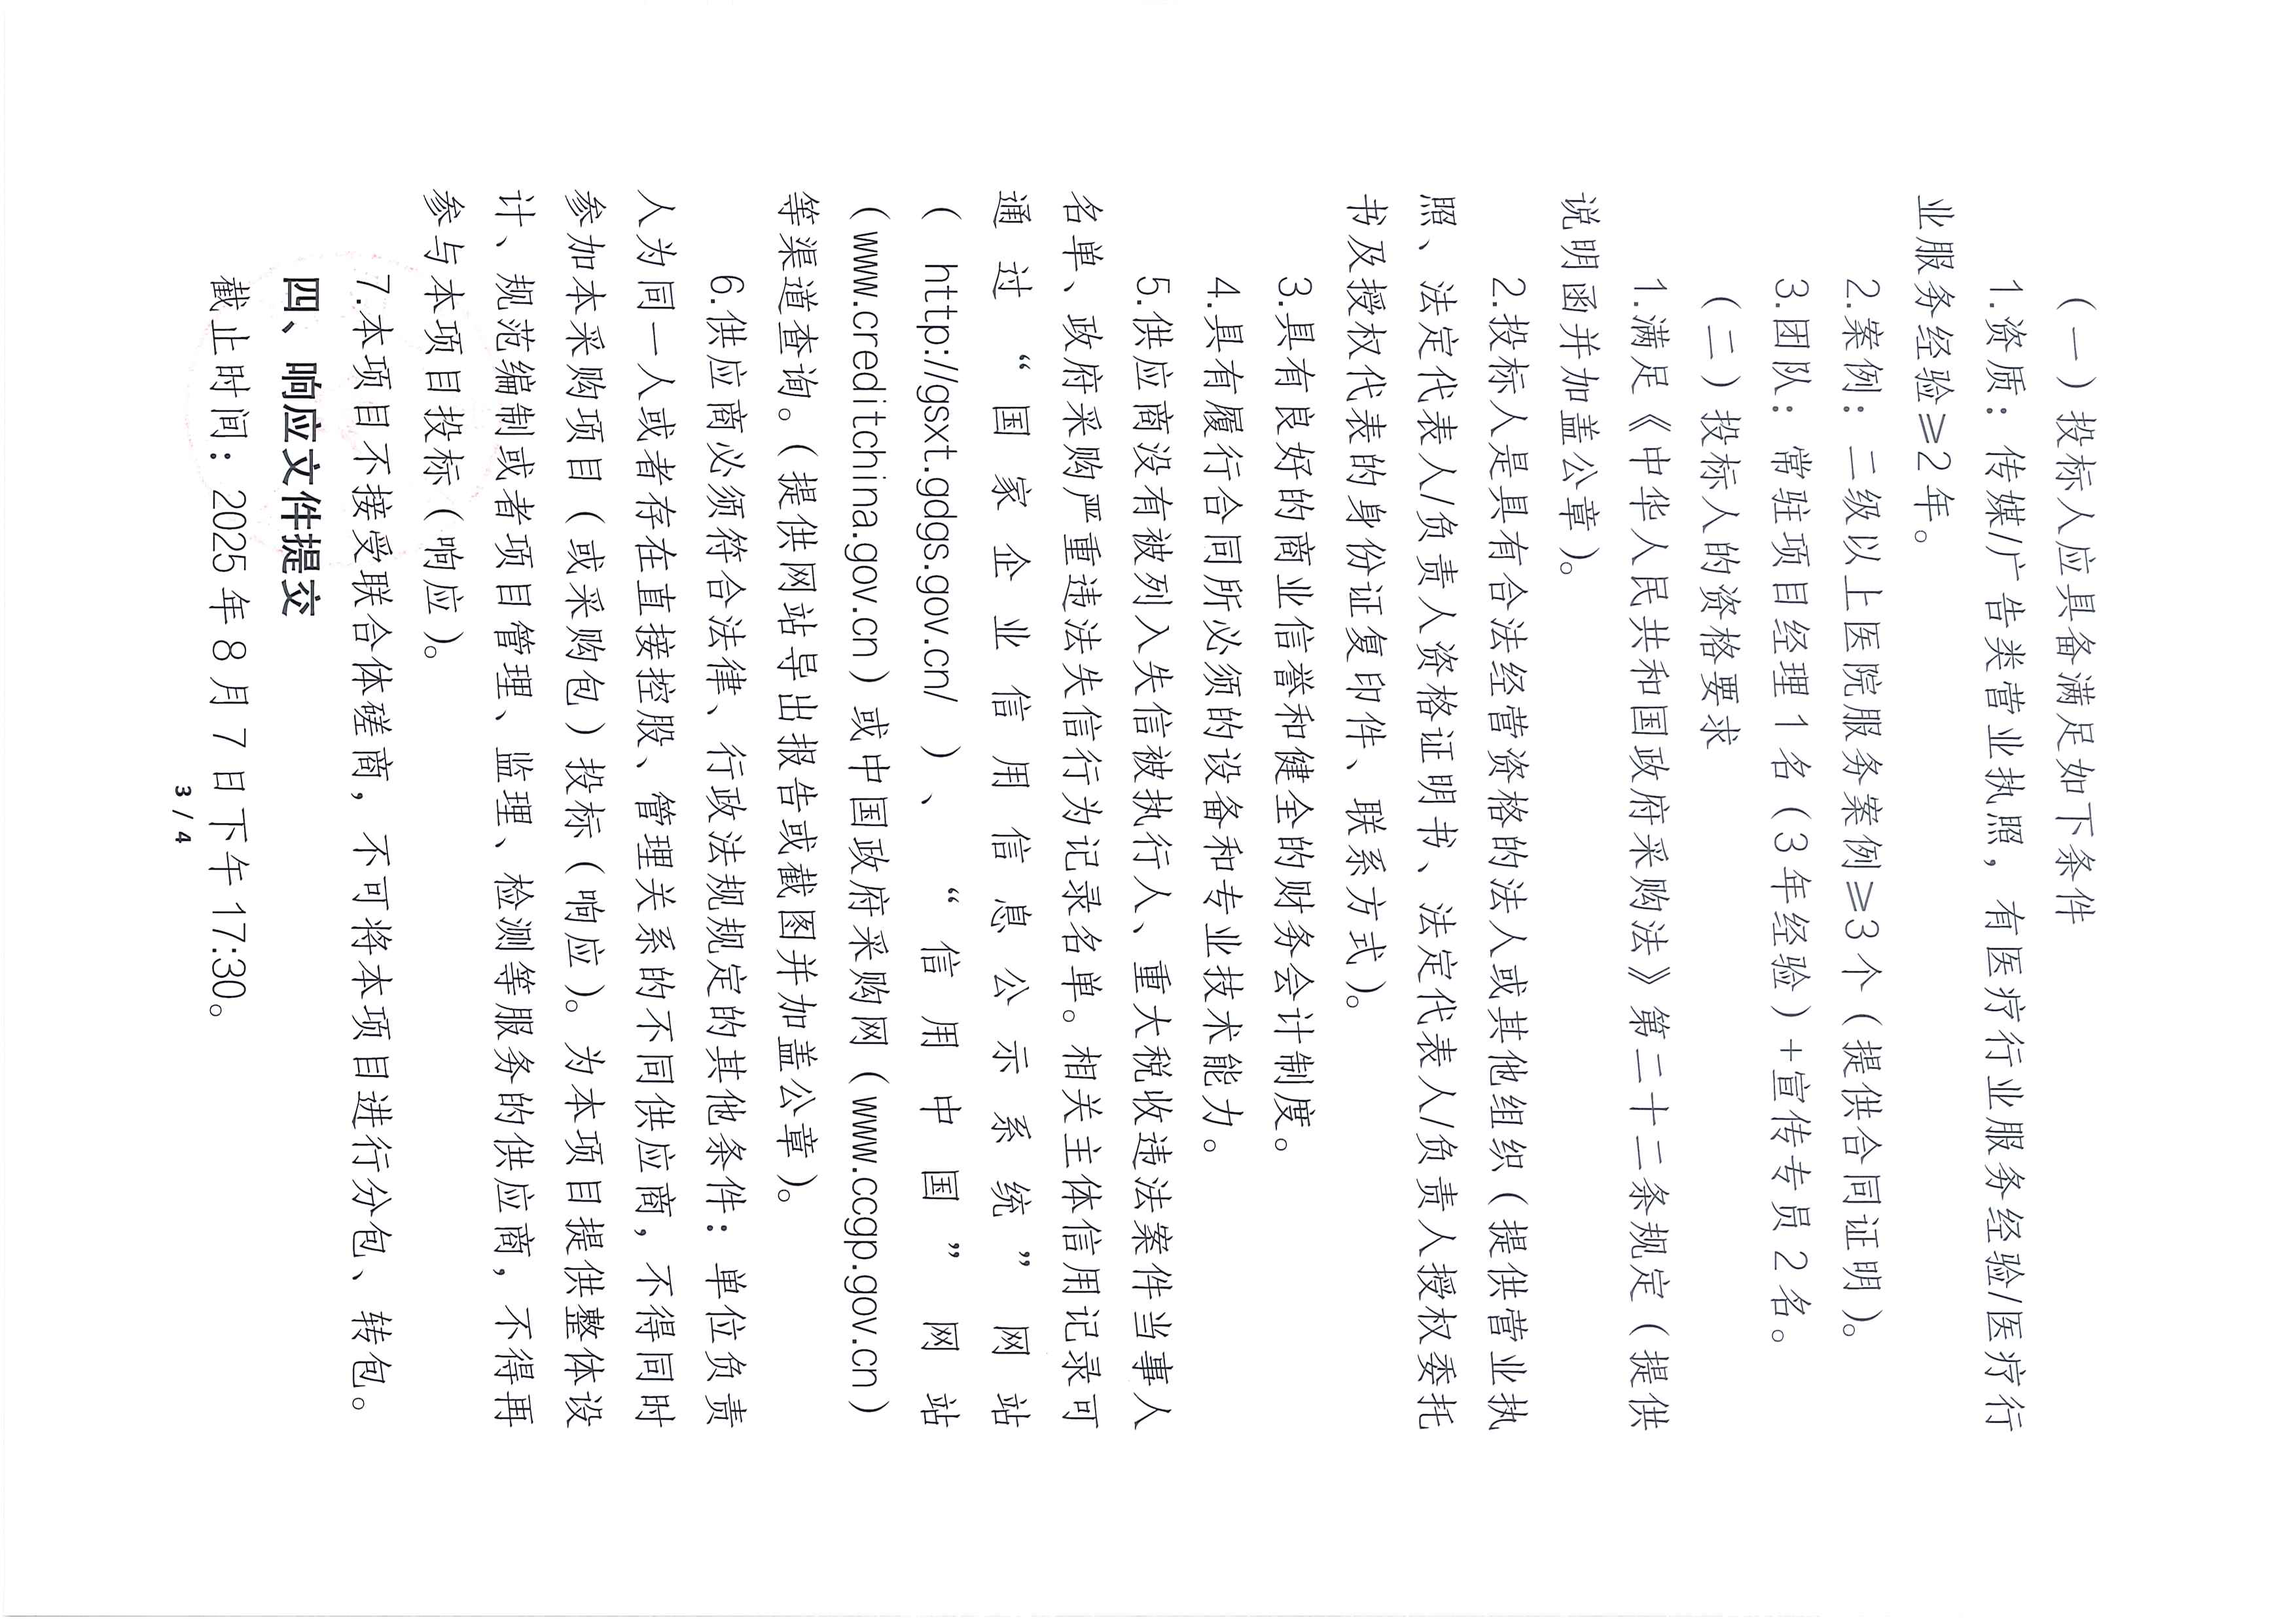 （一）投标人应具备满足如下条件
1.资质：传媒/广告类营业执照，有医疗行业服务经验/医疗行
业服务经验≥2年。
2.案例：二级以上医院服务案例≥3个（提供合同证明）。
3.团队：常驻项目经理1名（3年经验）+宣传专员2名。
（二）投标人的资格要求
1.满足《中华人民共和国政府采购法》第二十二条规定（提供
说明函并加盖公章）。
2.投标人是具有合法经营资格的法人或其他组织（提供营业执
照、法定代表人/负责人资格证明书、法定代表人/负责人授权委托
书及授权代表的身份证复印件、联系方式）。
3.具有良好的商业信誉和健全的财务会计制度。
4.具有履行合同所必须的设备和专业技术能力。
5.供应商没有被列入失信被执行人、重大税收违法案件当事人
名单、政府采购严重违法失信行为记录名单。相关主体信用记录可
通过“国家企业信用信息公示系统”网站
（http://gsxt.gdgs.gov.cn/）、“信用中国”网站
（www.creditchina.gov.cn）或中国政府采购网（www.ccgp.gov.cn）
等渠道查询。（提供网站导出报告或截图并加盖公章）。
6.供应商必须符合法律、行政法规规定的其他条件：单位负责
人为同一人或者存在直接控股、管理关系的不同供应商，不得同时
参加本采购项目（或采购包）投标（响应）。为本项目提供整体设
计、规范编制或者项目管理、监理、检测等服务的供应商，不得再
参与本项目投标（响应）。
7.本项目不接受联合体磋商，不可将本项目进行分包、转包。
四、响应文件提交
截止时间：2025年8月7日下午17:30。
3 / 4